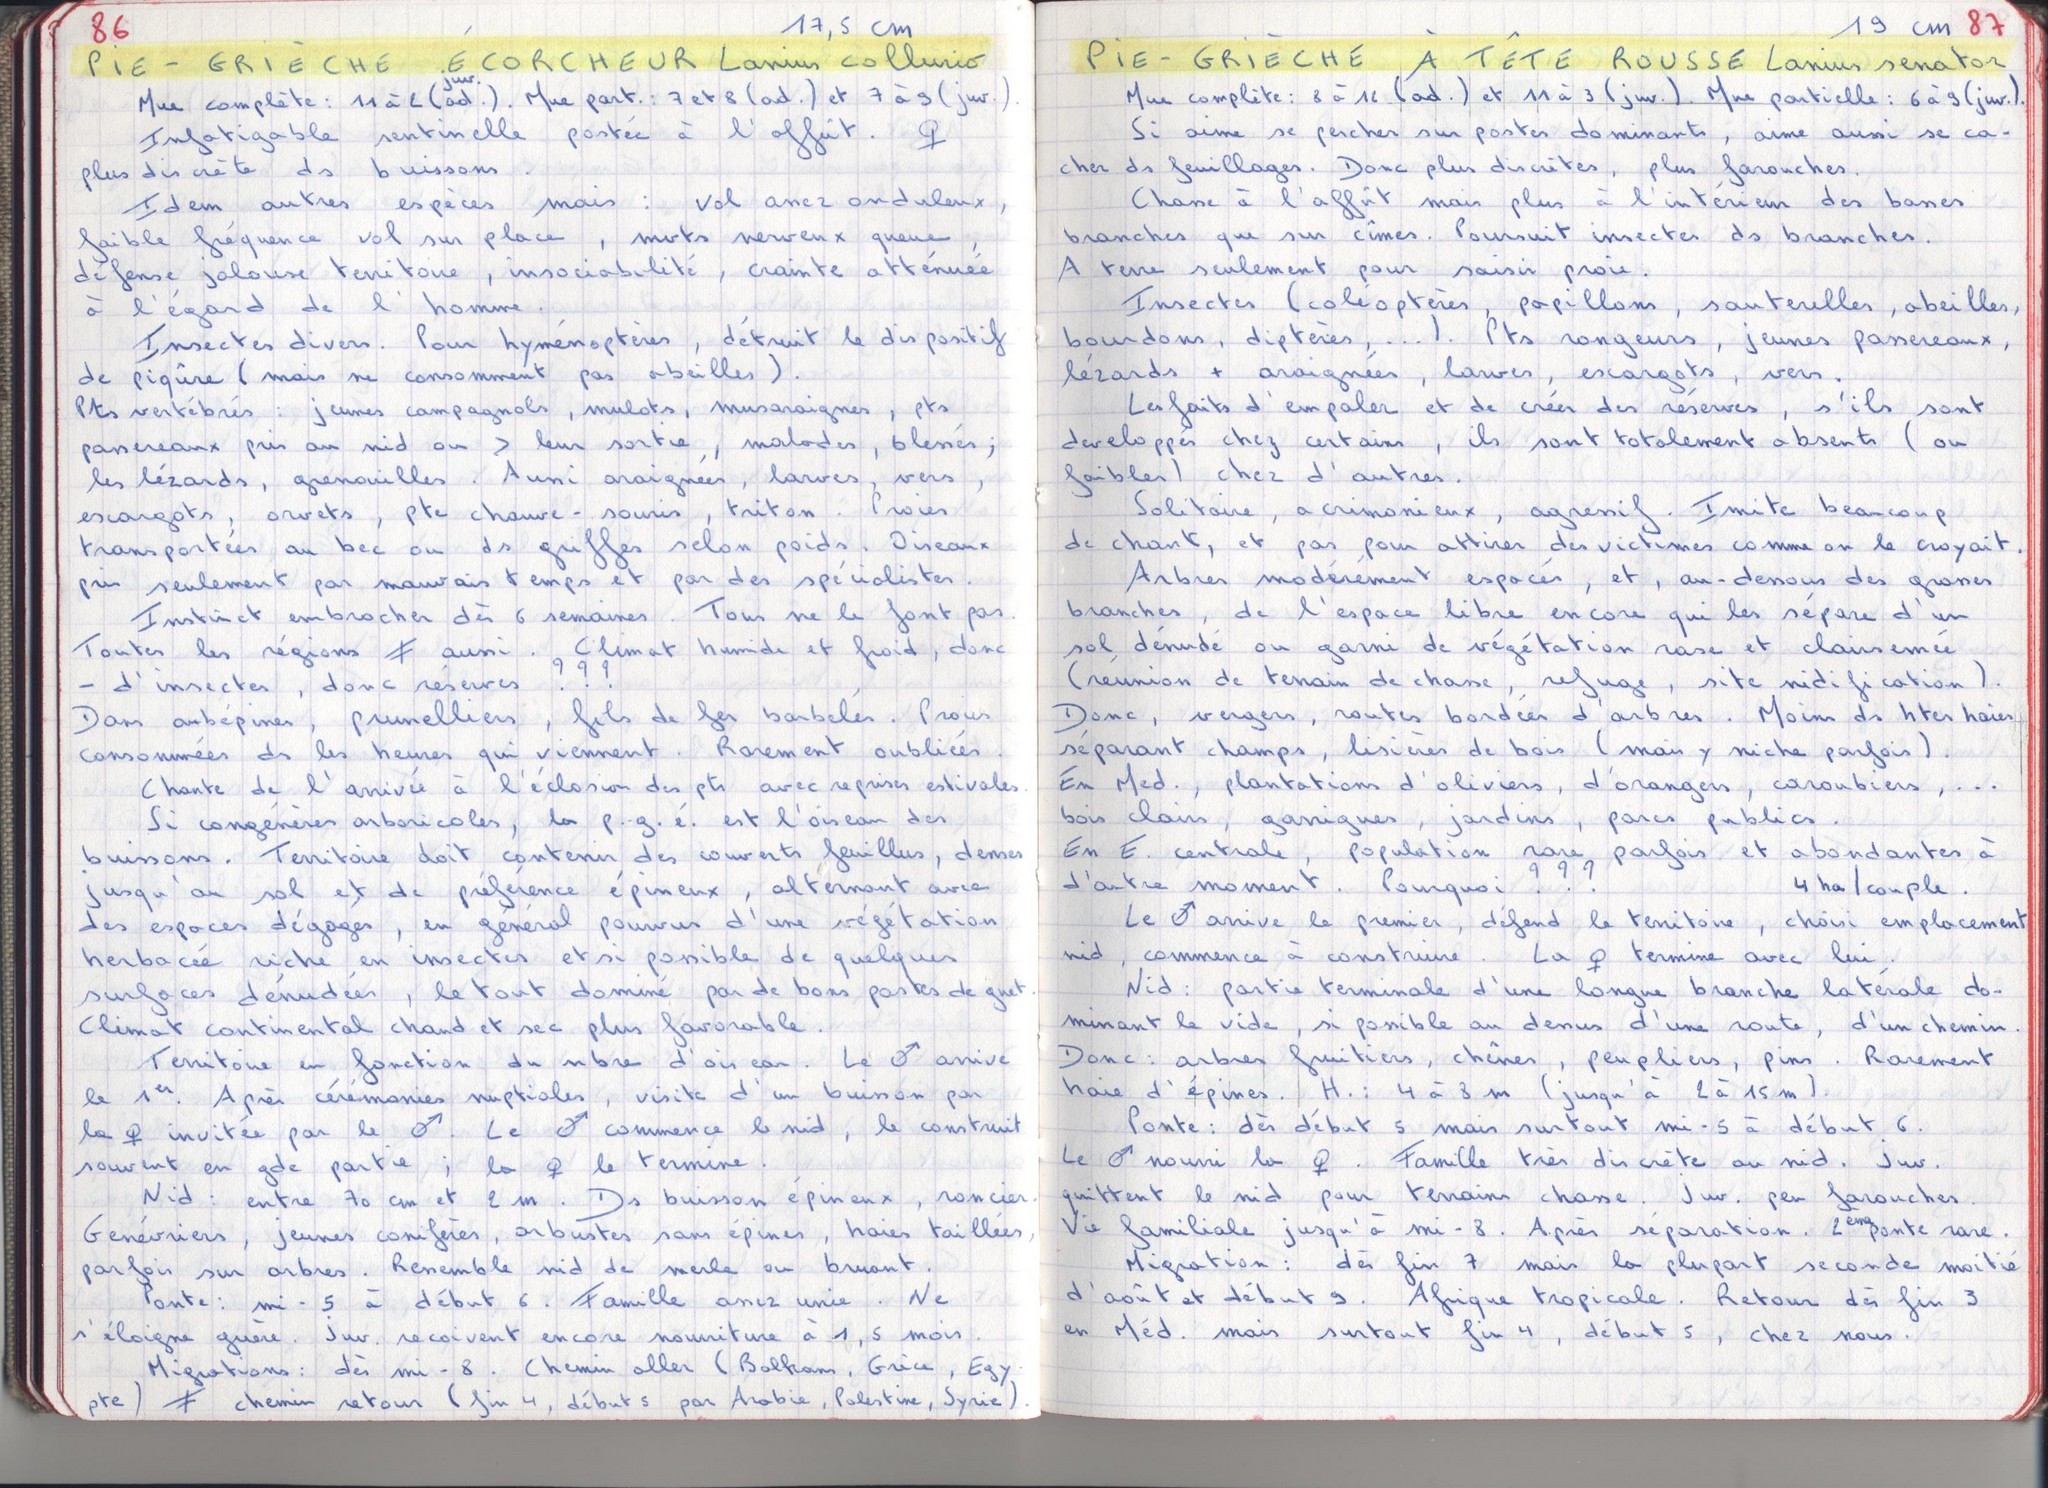 86
17,5 cm
PIE-GRIÈCHE ÉCORCHEUR Lanius collurio
juv.
Mue complète : 11 à 2 (ad.). Mue part. : 7 et 8 (ad.) et 7 à 9 (juv.).
Infatigable sentinelle postée à l'affût. ♀
plus discrète ds buissons.
Idem autres espèces mais : vol assez onduleux,
faible fréquence vol sur place, mvts nerveux queue,
défense jalouse territoire, insociabilité, crainte atténuée
à l'égard de l'homme.
Insectes divers. Pour hyménoptères, détruit le dispositif
de piqûre (mais ne consomment pas abeilles).
Pts vertébrés : jeunes campagnols, mulots, musaraignes, pts
passereaux pris au nid ou > leur sortie, malades, blessés ;
les lézards, grenouilles. Aussi araignées, larves, vers,
escargots, orvets, pte chauve-souris, triton. Proies
transportées au bec ou ds griffes selon poids. Oiseaux
pris seulement par mauvais temps et par des spécialistes.
Instinct embrocher dès 6 semaines. Tous ne le font pas.
Toutes les régions ≠ aussi. Climat humide et froid, donc
- d'insectes, donc réserves ???
Dans aubépines, prunelliers, fils de fer barbelés. Proies
consommées ds les heures qui viennent. Rarement oubliées.
Chante de l'arrivée à l'éclosion des pts avec reprises estivales.
Si congénères arboricoles, la p.g.é. est l'oiseau des
buissons. Territoire doit contenir des couverts feuillus, denses
jusqu'au sol et de préférence épineux, alternant avec
des espaces dégagés, en général pourvus d'une végétation
herbacée riche en insectes et si possible de quelques
surfaces dénudées, le tout dominé par de bons postes de guet.
Climat continental chaud et sec plus favorable.
Territoire en fonction du nbre d'oiseau. Le ♂ arrive
le 1er. Après cérémonies nuptiales, visite d'un buisson par
la ♀ invitée par le ♂. Le ♂ commence le nid, le construit
souvent en gde partie ; la ♀ le termine.
Nid : entre 70 cm et 2 m. Ds buisson épineux, roncier.
Genévriers, jeunes conifères, arbustes sans épines, haies taillées,
parfois sur arbres. Ressemble nid de merle ou bruant.
Ponte : mi-5 à début 6. Famille assez unie. Ne
s'éloigne guère. Juv. recoivent encore nourriture à 1,5 mois.
Migrations : dès mi-8. Chemin aller (Balkans, Grèce, Egy-
pte) ≠ chemin retour (fin 4, début 5 par Arabie, Palestine, Syrie).
19 cm 87
PIE-GRIÈCHE À TÊTE ROUSSE Lanius senator
Mue complète : 8 à 12 (ad.) et 11 à 3 (juv.). Mue partielle : 6 à 9 (juv.).
Si aime se percher sur postes dominants, aime aussi se ca-
cher ds feuillages. Donc plus discrètes, plus farouches.
Chasse à l'affût mais plus à l'intérieur des basses
branches que sur cîmes. Poursuit insectes ds branches.
A terre seulement pour saisir proie.
Insectes (coléoptères, papillons, sauterelles, abeilles,
bourdons, diptères, ...). Pts rongeurs, jeunes passereaux,
lézards + araignées, larves, escargots, vers.
Les faits d'empaler et de créer des réserves, s'ils sont
developpés chez certains, ils sont totalement absents (ou
faibles) chez d'autres.
Solitaire, acrimonieux, agressif. Imite beaucoup
de chant, et pas pour attirer des victimes comme on le croyait.
Arbres modérément espacés, et, au-dessous des grosses
branches, de l'espace libre encore qui les sépare d'un
sol dénudé ou garni de végétation rase et clairsemée
(réunion de terrain de chasse, refuge, site nidification).
Donc, vergers, routes bordées d'arbres. Moins ds htes haies
séparant champs, lisières de bois (mais y niche parfois).
En Med., plantations d'oliviers, d'orangers, caroubiers, ...
bois clairs, garrigues, jardins, parcs publics.
En E. centrale, population rare parfois et abondantes à
d'autre moment. Pourquoi ??? 4 ha/couple.
Le ♂ arrive le premier, défend le territoire, choisi emplacement
nid, commence à construire. La ♀ termine avec lui.
Nid : partie terminale d'une longue branche latérale do-
minant le vide, si possible au dessus d'une route, d'un chemin.
Donc : arbres fruitiers, chênes, peupliers, pins. Rarement
haie d'épines. H. : 4 à 8 m (jusqu'à 2 à 15 m).
Ponte : dès début 5 mais surtout mi-5 à début 6.
Le ♂ nourri la ♀. Famille très discrète au nid. Juv.
quittent le nid pour terrains chasse. Juv. peu farouches.
Vie familiale jusqu'à mi-8. Après séparation. 2ème ponte rare.
Migration : dès fin 7 mais la plupart seconde moitié
d'août et début 9. Afrique tropicale. Retour dès fin 3
en Méd. mais surtout fin 4, début 5, chez nous.